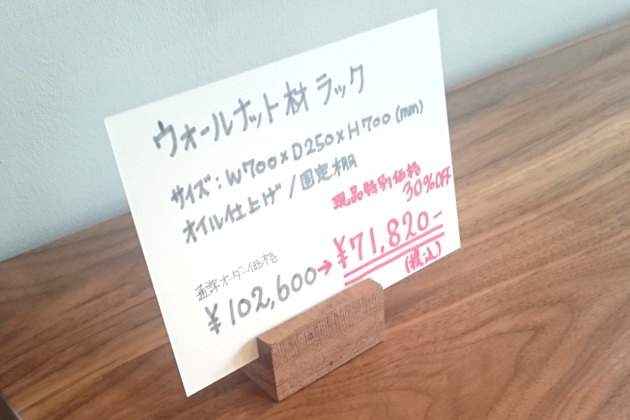 ウォールナット材 ラック
サイズ:W700×D250×H700(mm)
オイル仕上げ/固定棚
現品特別価格
30%OFF
通常オーダー価格
¥102,600→¥71,820-
(税込)